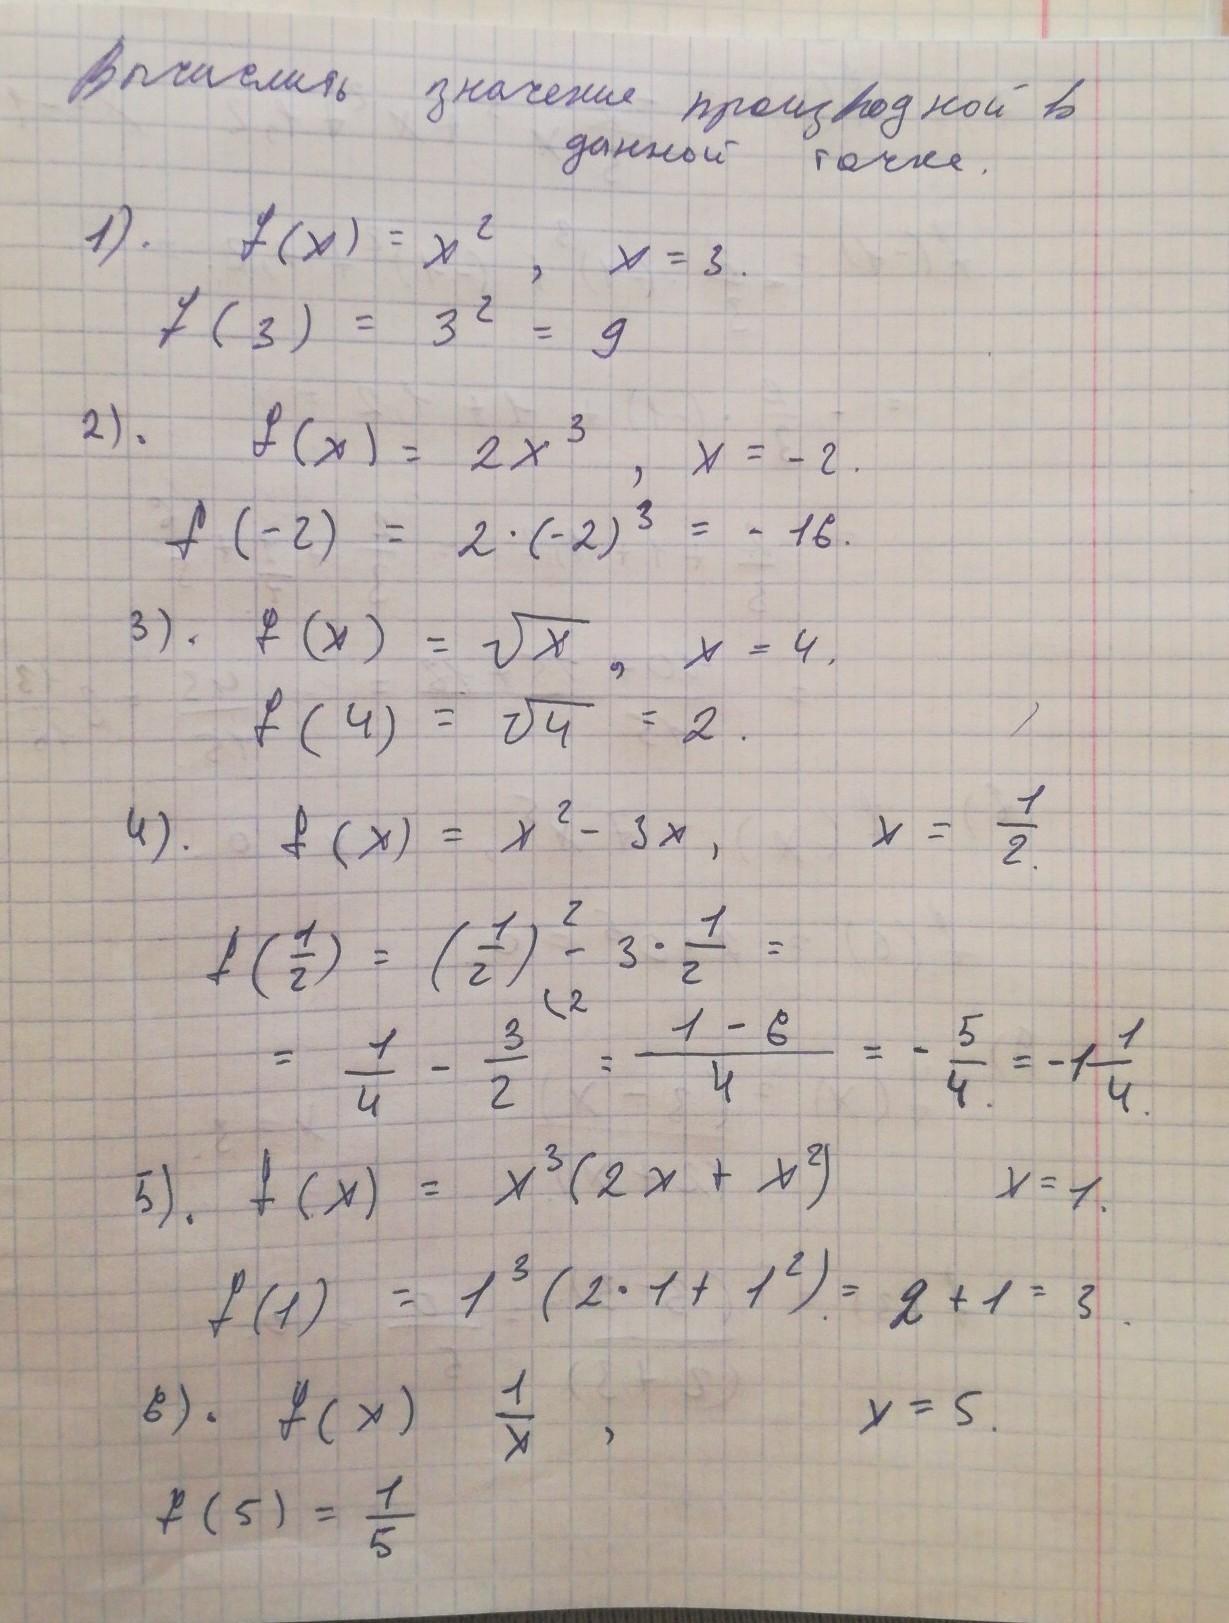 Вычислить значение производной в
данной точке.
1). f(x) = x², x = 3.
f(3) = 3² = 9
2). f(x) = 2x³, x = -2.
f(-2) = 2·(-2)³ = -16.
3). f(x) = √x, x = 4.
f(4) = √4 = 2.
4). f(x) = x² - 3x, x = 1/2.
f(1/2) = (1/2)² - 3·1/2 =
= 1/4 - 3/2 (2 = (1-6)/4 = -5/4 = -1 1/4.
5). f(x) = x³(2x + x²) x = 1.
f(1) = 1³(2·1 + 1²) = 2 + 1 = 3.
6). f(x) 1/x, x = 5.
f(5) = 1/5